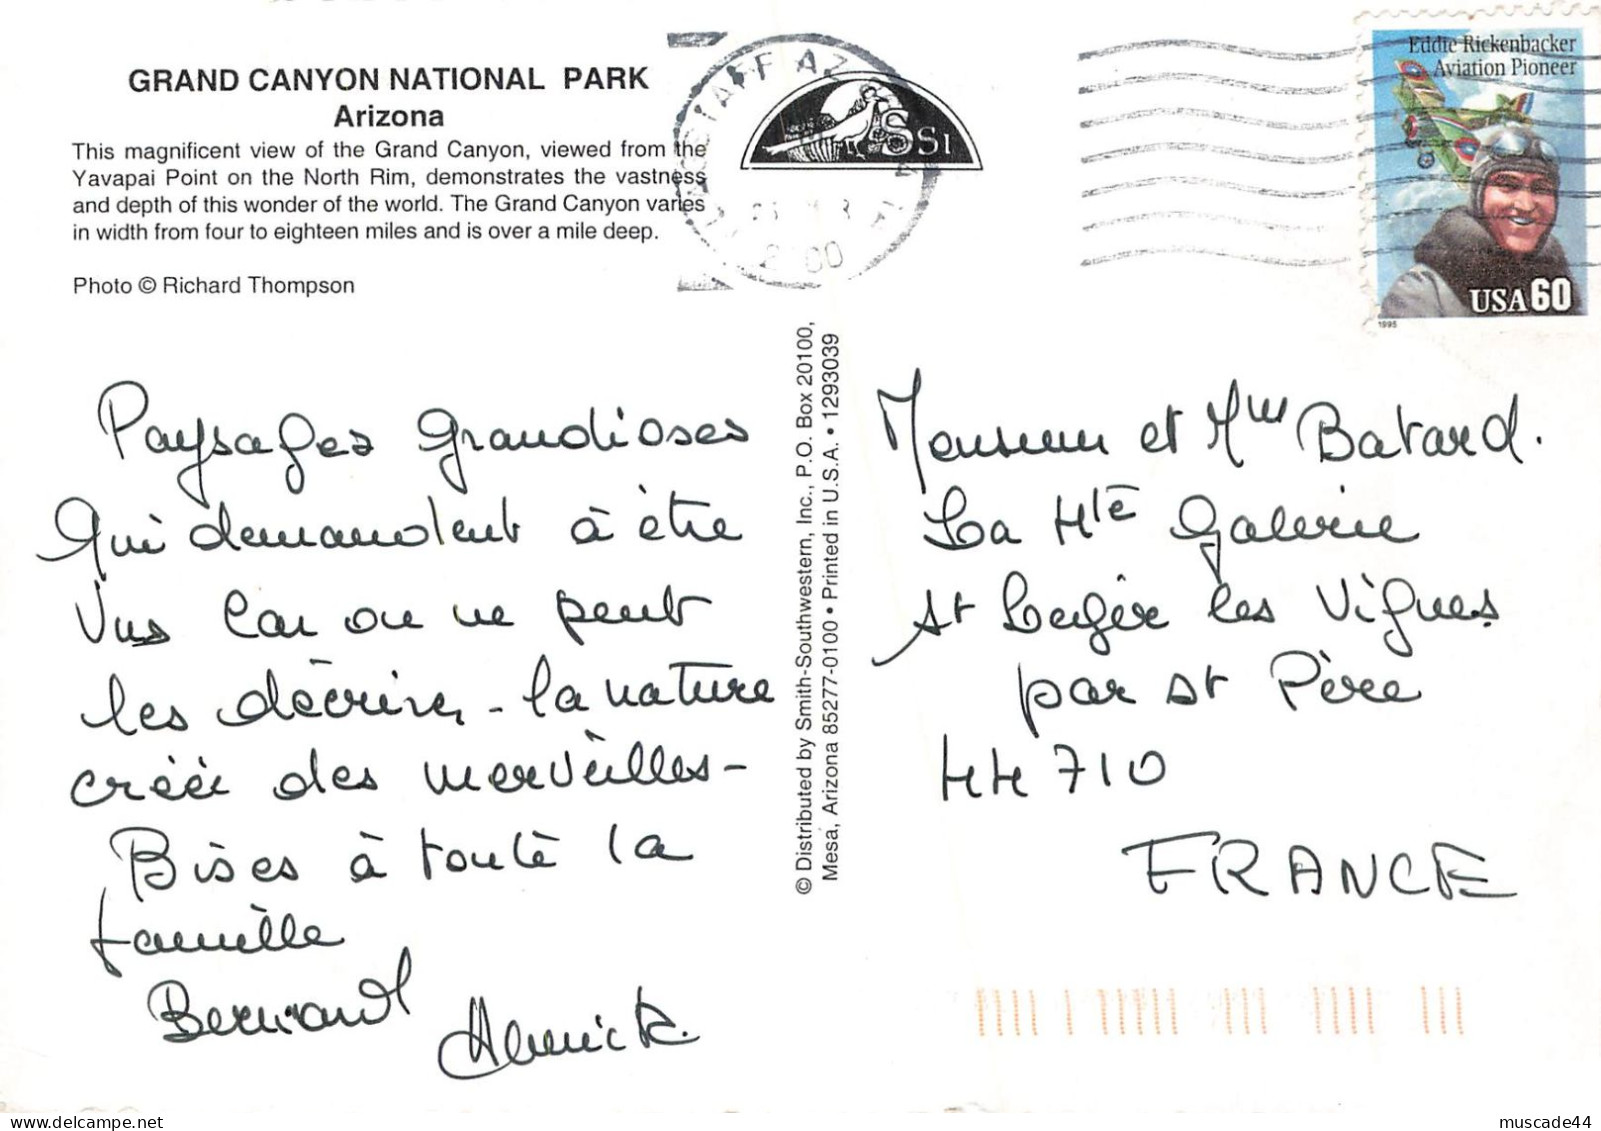 GRAND CANYON NATIONAL PARK
Arizona
This magnificent view of the Grand Canyon, viewed from the
Yavapai Point on the North Rim, demonstrates the vastness
and depth of this wonder of the world. The Grand Canyon varies
in width from four to eighteen miles and is over a mile deep.
Photo © Richard Thompson
FLAGSTAFF AZ
SSI
Eddie Rickenbacker
Aviation Pioneer
USA 60
1995
Paysages grandioses
Qui demandent à être
Vus car on ne peut
les décrire - la nature
créée des merveilles -
Bises à toute la
famille
Bernard Annick
© Distributed by Smith-Southwestern, Inc., P.O. Box 20100,
Mesa, Arizona 85277-0100 • Printed in U.S.A. • 1293039
Monsieur et Mme Batard.
La Hte Galerie
St Léger les Vignes
par St Père
44710
FRANCE
muscade44